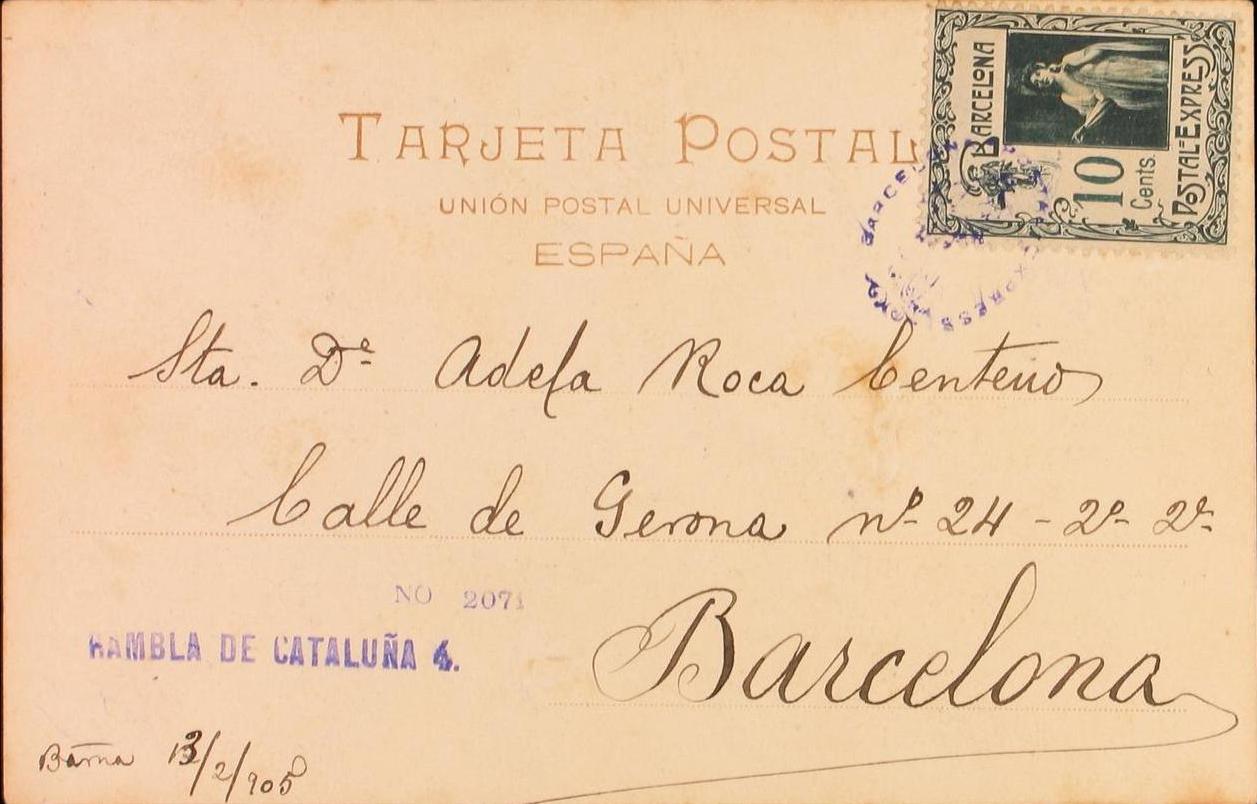 TARJETA POSTAL
UNIÓN POSTAL UNIVERSAL
ESPAÑA
BARCELONA
10
Cents.
POSTAL-EXPRESS
BARCELONA POSTAL EXPRESS
Sta. Dª Adela Roca Centeno
Calle de Gerona nº 24 - 2º 2ª
Barcelona
NO 2071
RAMBLA DE CATALUÑA 4.
Barna 13/2/905